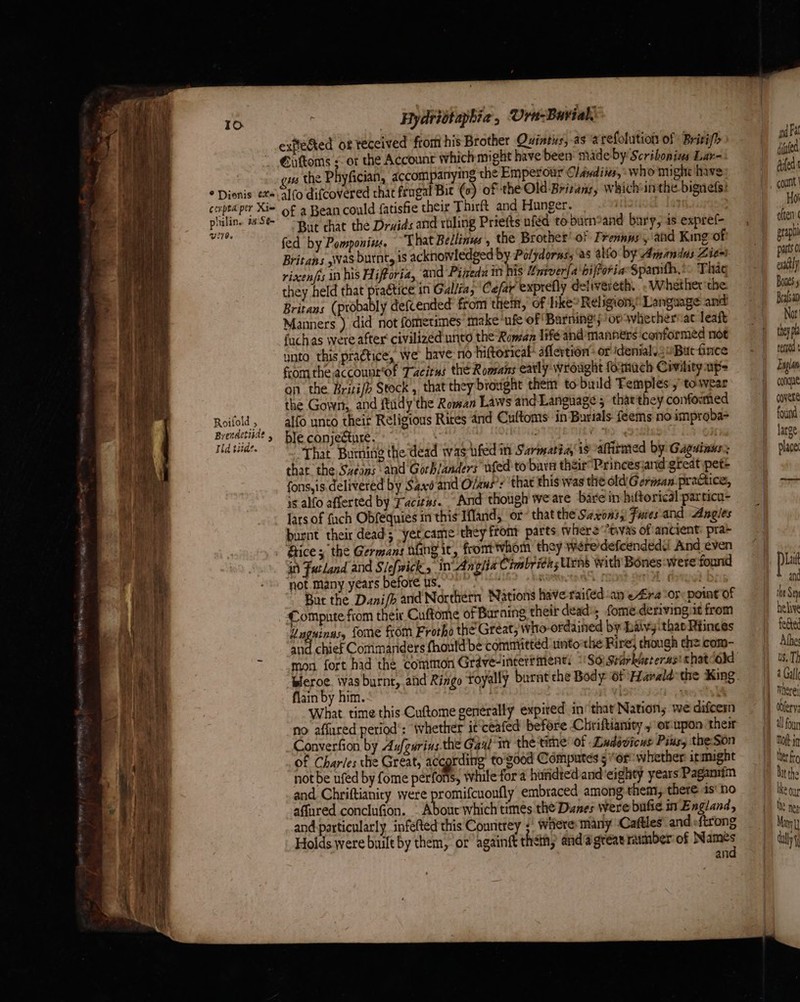 10
Hydriotaphia, Urn-Burial.
expected or received from his Brother Quintus, as a resolution of Britiſh
Cuſtoms; or the Account which might have been made by Scribonius Lar-
gus the Phyſician, accompanying the Emperour Claudius, who might have
alſo diſcovered that frugal Bit (o) of the Old Britans, which in the bigneſs
of a Bean could ſatisfie their Thirſt and Hunger.
But that the Druids and ruling Prieſts uſed to burn and bury, is expreſ-
ſed by Pomponius. That Bellinus, the Brother of Brennus, and King of
Britans was burnt, is acknowledged by Polydorus, as alſo by Amandus Zie-
rixenſis in his Hiſtoria, and Pineda in his Univerſa hiſtoria Spaniſh. That
they held that practice in Gallia, Ceſar expreſly delivereth. Whether the
Britans (probably deſcended from them, of like Religion, Language and
Manners) did not ſometimes make uſe of Burning; or whether at leaſt
ſuch as were after civilized unto the Roman life and manners conformed not
unto this practice, we have no hiſtorical aſſertion or denial. But ſince
from the account of Tacitus the Romans early wrought ſo much Civility up-
on the Britiſh Stock, that they brought them to build Temples, to wear
the Gown, and ſtudy the Roman Laws and Language; that they conformed
alſo unto their Religious Rites and Cuſtoms in Burials ſeems no improba-
ble conjecture.
That Burning the dead was uſed in Sarmatia, is affirmed by Gaguinus;
that the Sueons and Gothlanders uſed to burn their Princes and great per-
ſons, is delivered by Saxo and Olaus: that this was the old German practice,
is alſo aſſerted by Tacitus. And though we are bare in hiſtorical particu-
lars of ſuch Obſequies in this Iſland, or that the Saxons, Jutes and Angles
burnt their dead; yet came they from parts where 'twas of ancient pra-
ctice; the Germans uſing it, from whom they were deſcended. And even
in Jutland and Sleſwick, in Anglia Cimbrica, Urns with Bones were found
not many years before us.
But the Daniſh and Northern Nations have raiſed an Æra or point of
Compute from their Cuſtome of Burning their dead; ſome deriving it from
Unguinus, ſome from Frotho the Great, who ordained by Law, that Princes
and chief Commanders ſhould be committed unto the Fire, though the com-
mon ſort had the common Grave-interrment. So Starkatterus that old
Heroe was burnt, and Ringo royally burnt the Body of Harald the King
ſlain by him.
What time this Cuſtome generally expired in that Nation, we diſcern
no aſſured period: whether it ceaſed before Chriſtianity, or upon their
Converſion by Auſgurius the Gaul in the time of Ludovicus Pius, the Son
of Charles the Great, according to good Computes; or whether it might
not be uſed by ſome perſons, while for a hundred and eighty years Paganiſm
and Chriſtianity were promiſcuouſly embraced among them, there is no
aſſured concluſion. About which times the Danes were buſie in England,
and particularly infeſted this Countrey; where many Caſtles and ſtrong
Holds were built by them, or againſt them, and a great number of Names
and
o Dionis ex-
cerpta per Xi-
philin. in Se-
vero.
Roiſold,
Brendetiide,
Ild tiide.